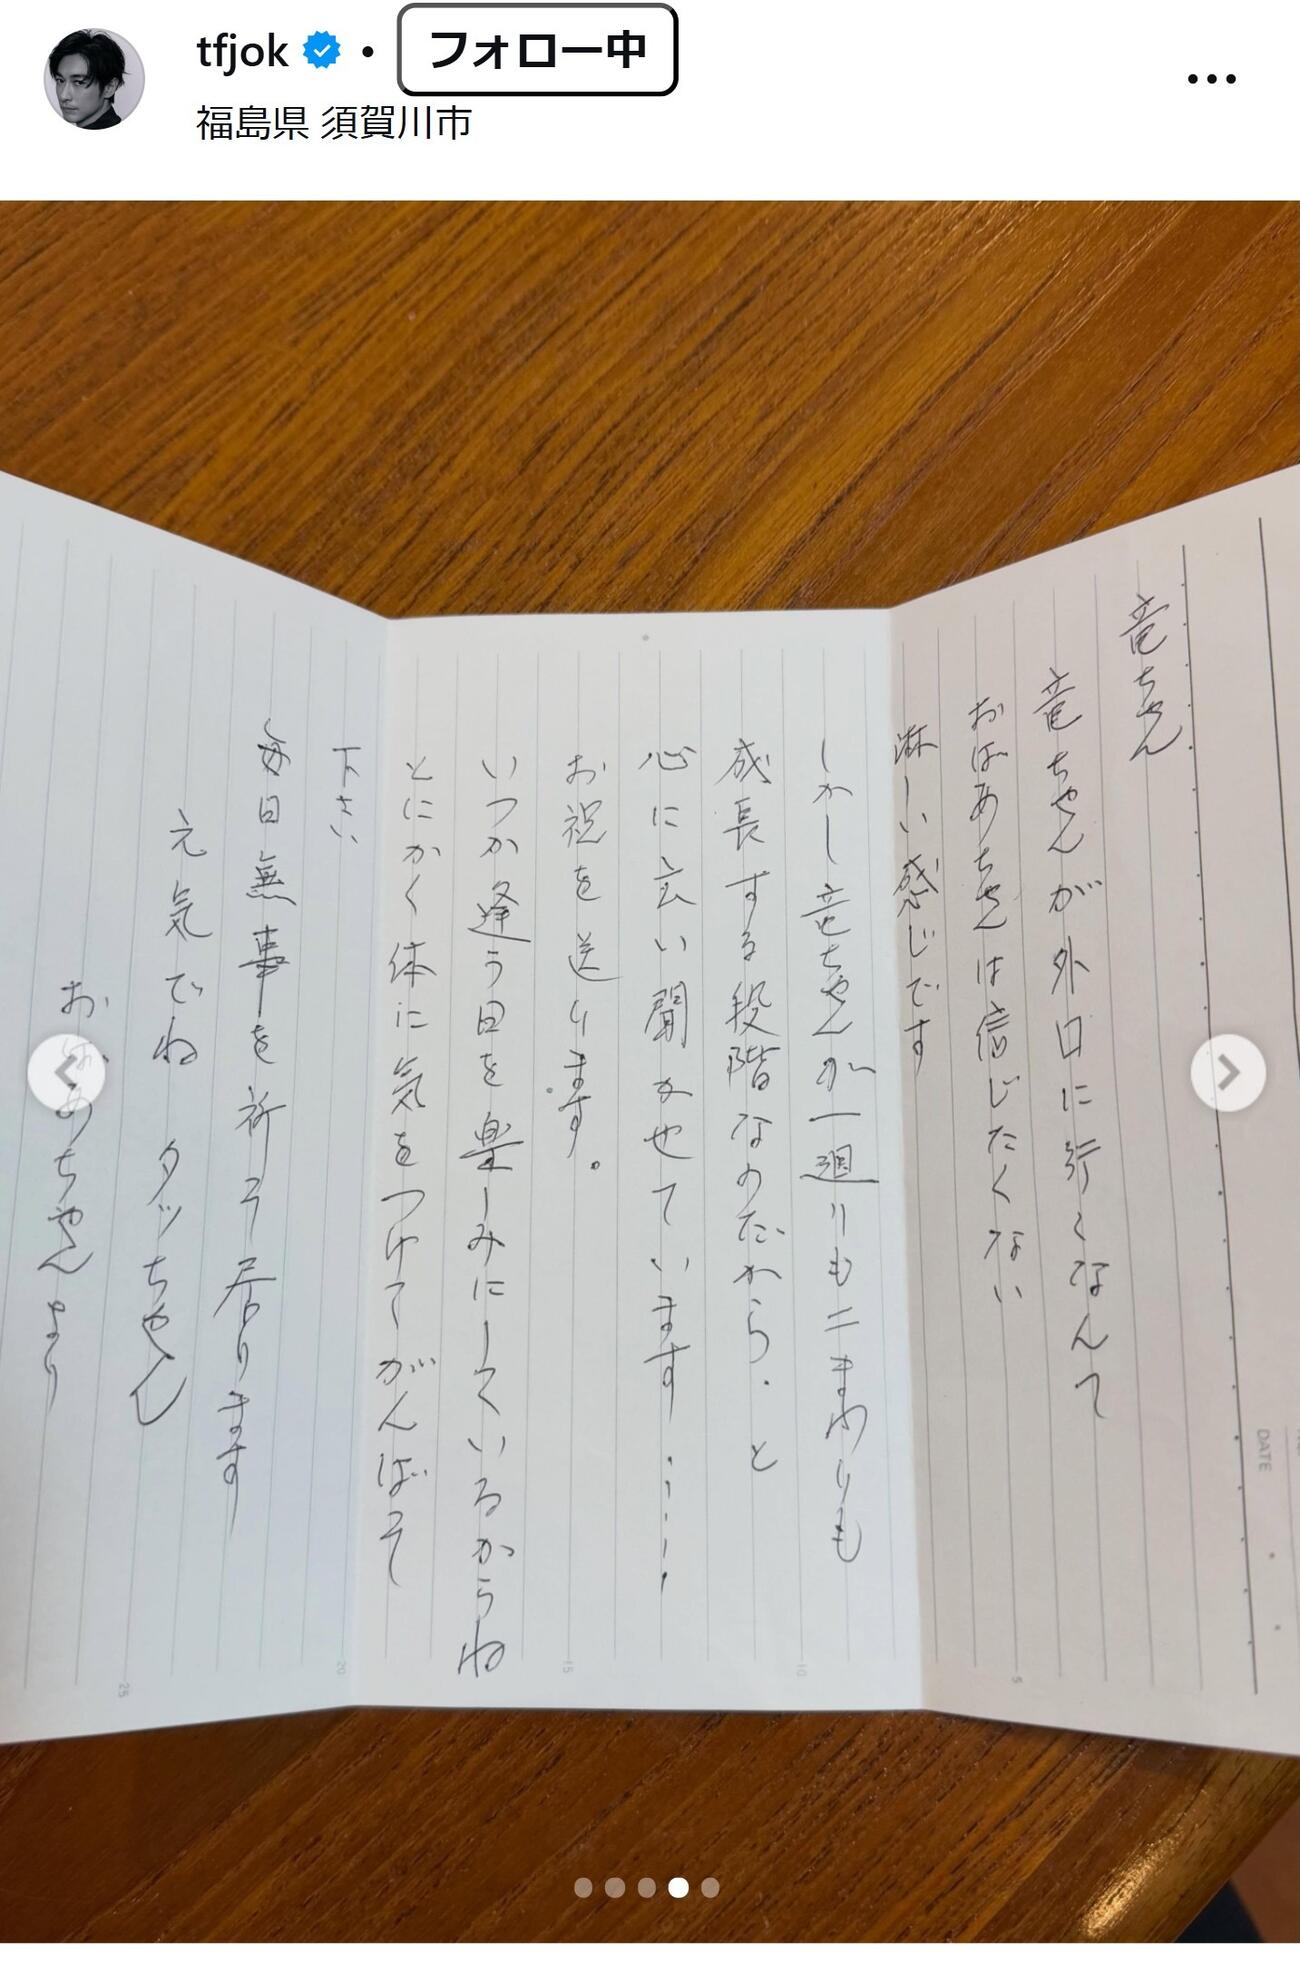 tfjok • フォロー中
福島県 須賀川市
竜ちゃん
竜ちゃんが外国に行くなんて
おばあちゃんは信じたくない
淋しい感じです
しかし竜ちゃんが一廻りも二まわりも
成長する段階なのだから・と
心に云い聞かせています・・・・・
お祝を送ります。
いつか逢う日を楽しみにしているからね
とにかく体に気をつけてがんばって
下さい
毎日無事を祈って居ります
元気でね タッちゃん
おばあちゃんより
DATE
5
10
15
20
25